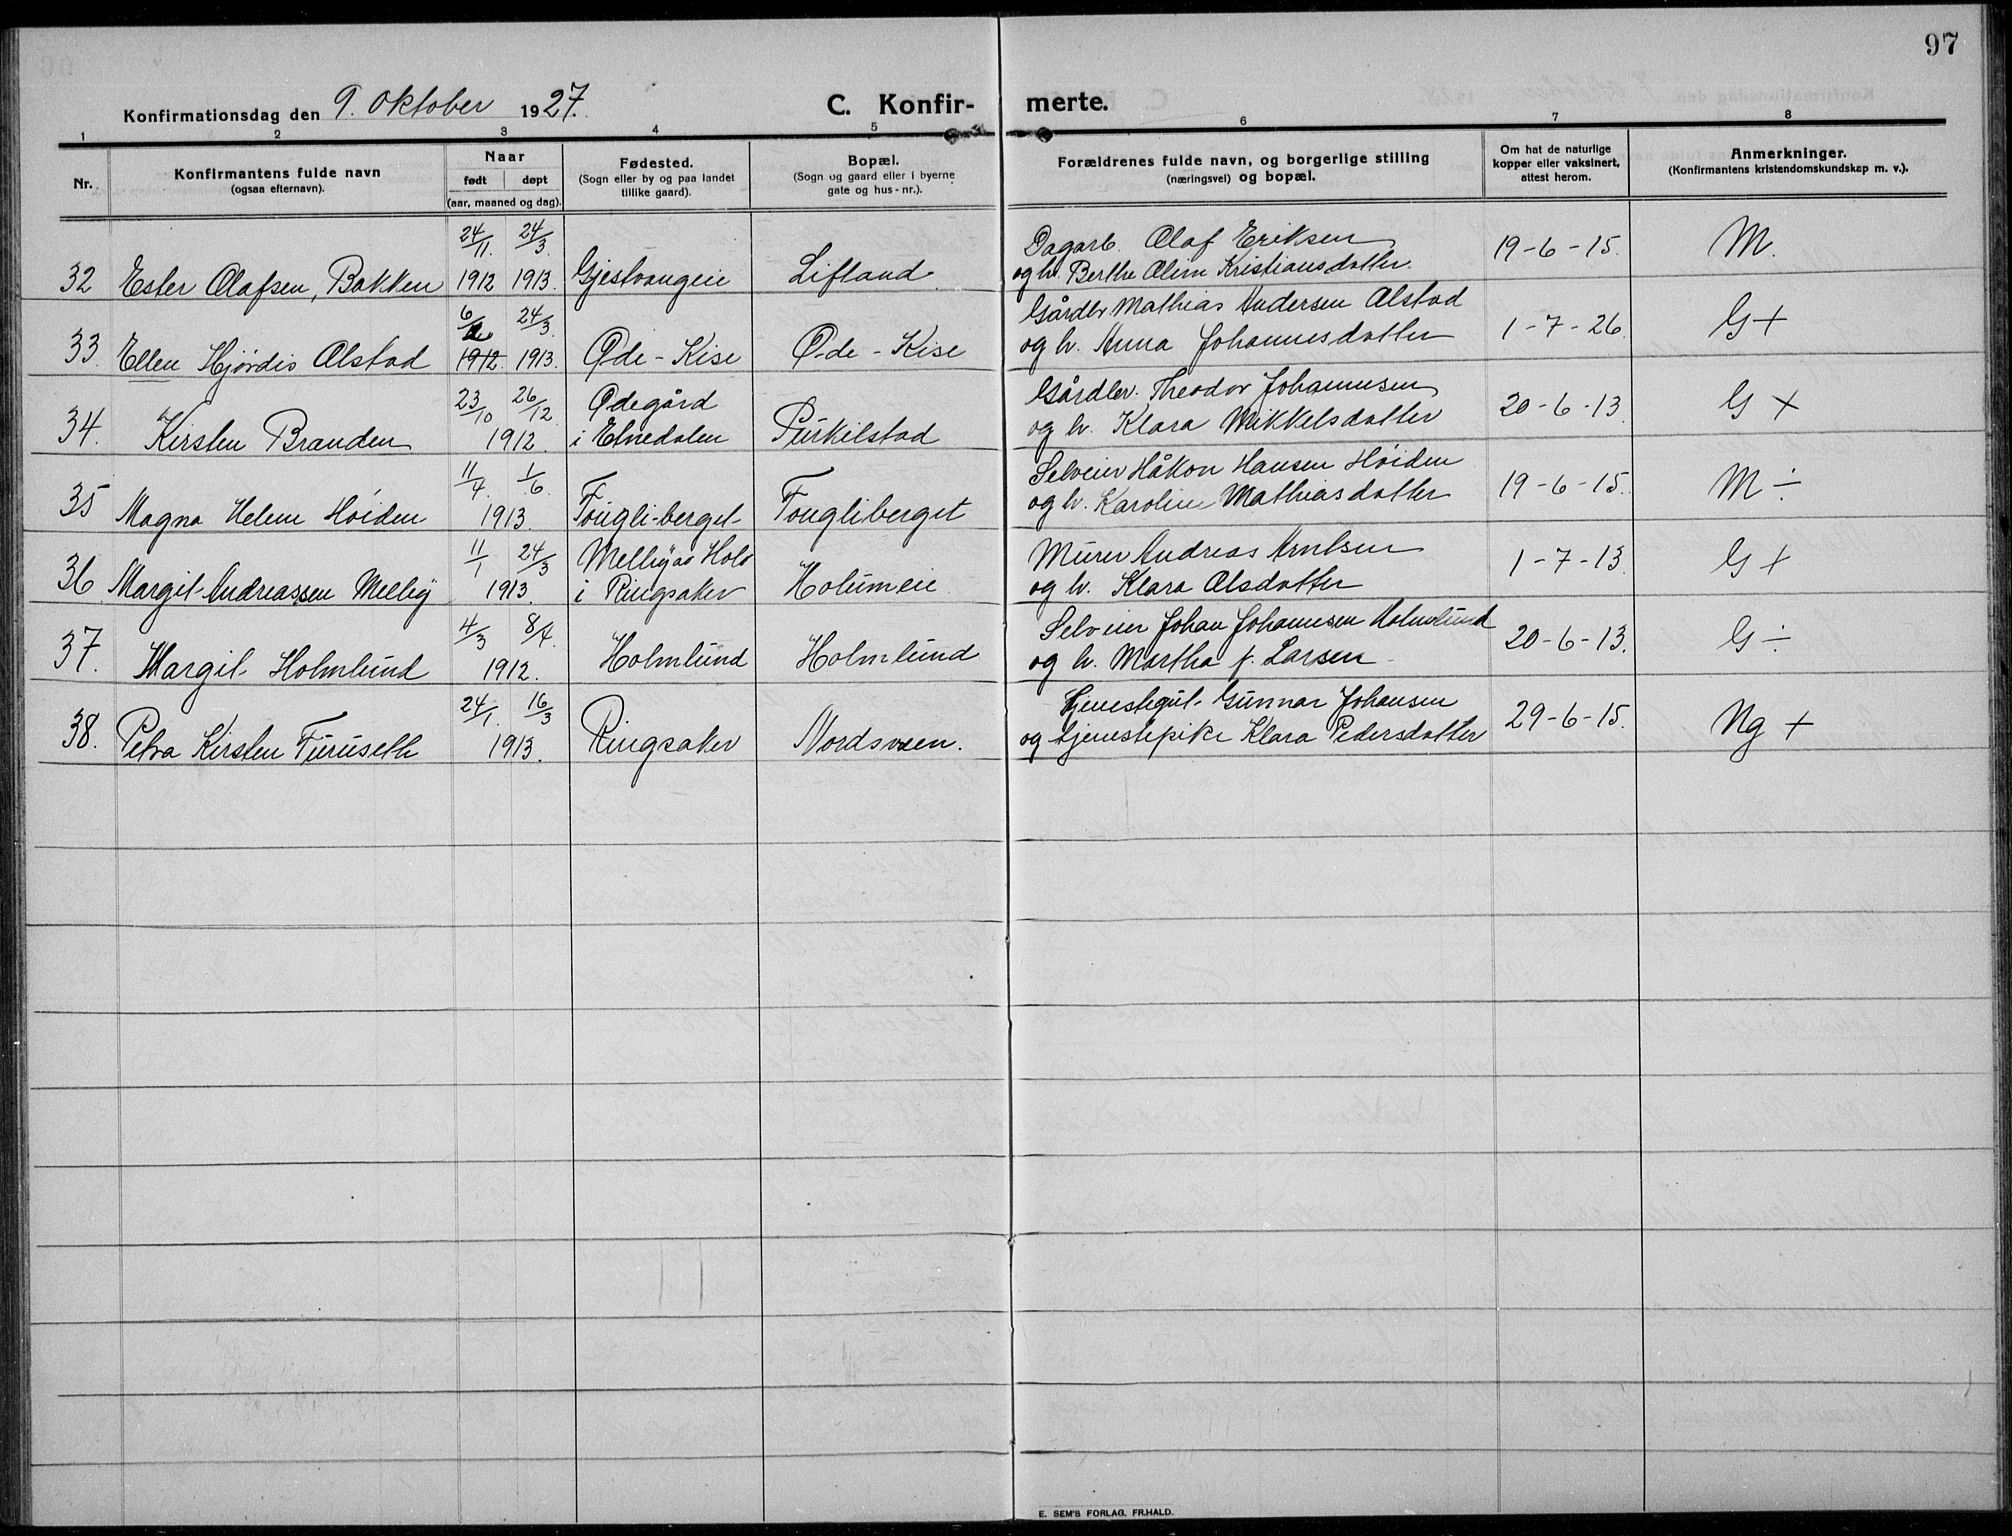 97
Konfirmationsdag den 9. Oktober 1927.
C. Konfir- merte.
1 2 3 4 5 6 7 8
Nr.
Konfirmantens fulde navn
(ogsaa efternavn).
Naar
født døpt
(aar, maaned og dag).
Fødested.
(Sogn eller by og paa landet
tillike gaard).
Bopæl.
(Sogn og gaard eller i byerne
gate og hus-nr.).
Forældrenes fulde navn, og borgerlige stilling
(næringsvei) og bopæl.
Om hat de naturlige
kopper eller vaksinert,
attest herom.
Anmerkninger.
(Konfirmantens kristendomskundskap m. v.).
24/11. 24/3. Dagarb. Olaf Eriksen 19-6-15. M.
32 Ester Olafsen, Bakken 1912 1913. Gjestvangeie Lifland. og h. Berthe Oline Kristiansdatter.
6/ 24/3. Gårdbr. Mathias Andersen Alstad 1-7-26. G+
33. Ellen Hjørdis Alstad 1912. 1913. Øde-Kise Øde-Kise og h. Anna Johannesdatter
23/10 26/12 Ødegård Gårdbr. Theodor Johannesen 20-6-13 G+
34. Kirsten Branden 1912. i Elnedalen Purkilstad og h. Klara Mikkelsdatter
11/4. 1/6. Selveier Håkon Hansen Høiden 19-6-15. M÷
35 Magna Helene Høiden 1913. Fougli-berget Fougliberget og h. Karoline Mathiasdatter
11/1 24/3 Melbyås Hols Murer Andreas Arntsen 1-7-13. G+
36. Margit Andreassen Melby 1913. i Ringsaker Holumeie og h. Klara Olsdatter
4/3 8/4. Selveier Johan Johannesen Holmlund 20-6-13. G÷
37. Margit Holmlund 1912. Holmlund Holmlund og h. Martha f. Larsen
24/1. 16/3 Tjenestegut Gunnar Johansen 29-6-15. Ng+
38. Petra Kirsten Furuseth 1913. Ringsaker Nordsveen. og tjenestepike Klara Pedersdatter
E. SEM'S FORLAG, FR.HALD.